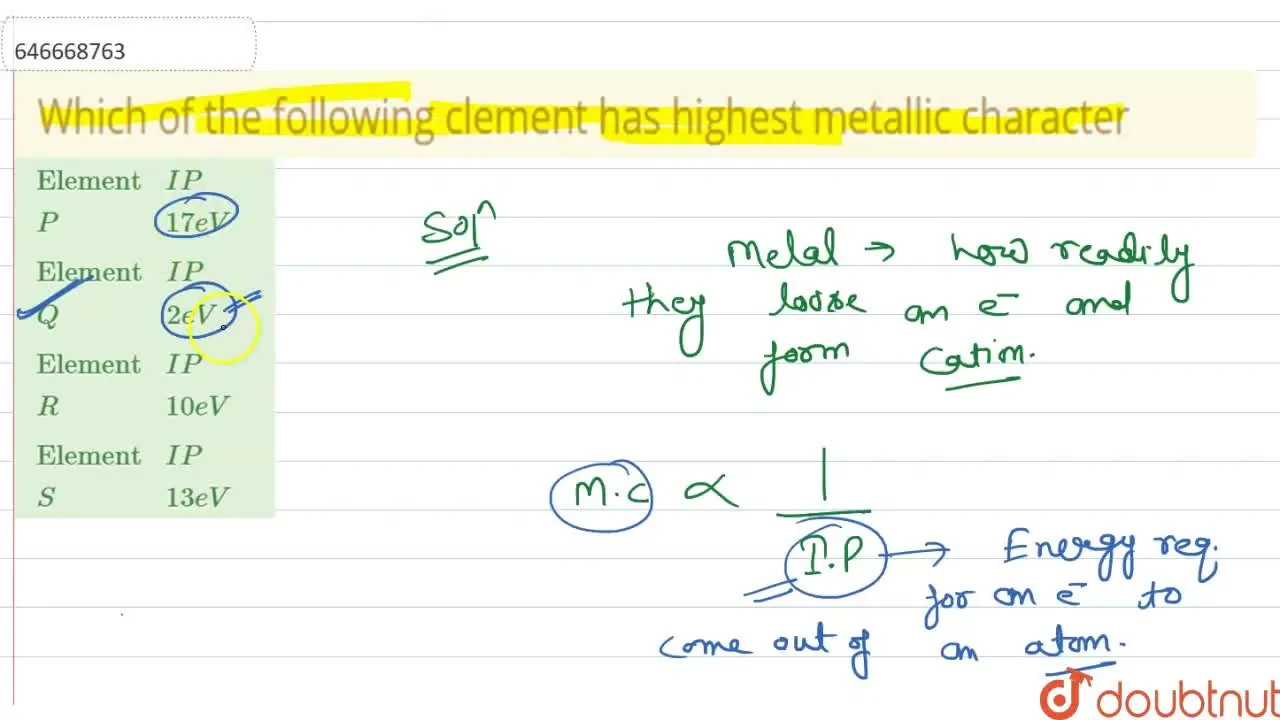 646668763
Which of the following clement has highest metallic character
Element IP
P 17eV
Element IP
Q 2eV
Element IP
R 10eV
Element IP
S 13eV
Solⁿ
Metal → how readily
they loose an e⁻ and
form Cation.
M.C ∝ 1
I.P → Energy req.
for an e⁻ to
come out of an atom.
doubtnut